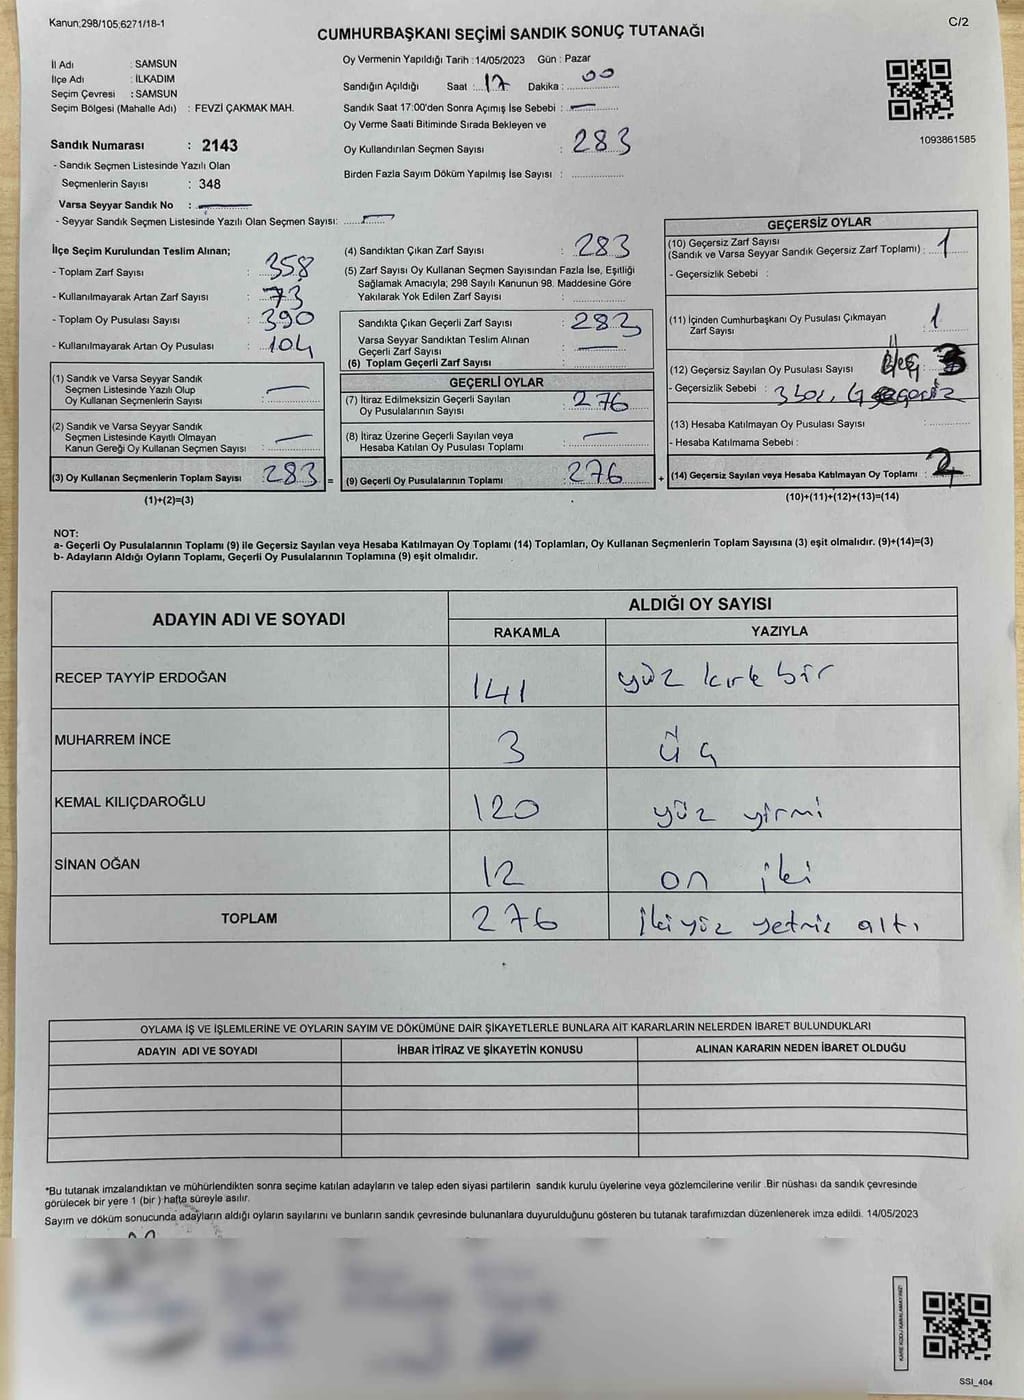 Kanun;298/105;6271/18-1
C/2
CUMHURBAŞKANI SEÇİMİ SANDIK SONUÇ TUTANAĞI
İl Adı : SAMSUN
İlçe Adı : İLKADIM
Seçim Çevresi : SAMSUN
Seçim Bölgesi (Mahalle Adı) : FEVZİ ÇAKMAK MAH.
Oy Vermenin Yapıldığı Tarih :14/05/2023 Gün : Pazar
Sandığın Açıldığı Saat : 17 Dakika : 00
Sandık Saat 17:00'den Sonra Açımış İse Sebebi : —
Oy Verme Saati Bitiminde Sırada Bekleyen ve
Oy Kullandırılan Seçmen Sayısı : 283
Birden Fazla Sayım Döküm Yapılmış İse Sayısı :
1093861585
Sandık Numarası : 2143
- Sandık Seçmen Listesinde Yazılı Olan
Seçmenlerin Sayısı : 348
Varsa Seyyar Sandık No : —
- Seyyar Sandık Seçmen Listesinde Yazılı Olan Seçmen Sayısı: —
İlçe Seçim Kurulundan Teslim Alınan;
- Toplam Zarf Sayısı : 358
- Kullanılmayarak Artan Zarf Sayısı : 73
- Toplam Oy Pusulası Sayısı : 390
- Kullanılmayarak Artan Oy Pusulası : 104
(1) Sandık ve Varsa Seyyar Sandık
Seçmen Listesinde Yazılı Olup
Oy Kullanan Seçmenlerin Sayısı : —
(2) Sandık ve Varsa Seyyar Sandık
Seçmen Listesinde Kayıtlı Olmayan
Kanun Gereği Oy Kullanan Seçmen Sayısı : —
(3) Oy Kullanan Seçmenlerin Toplam Sayısı : 283 =
(1)+(2)=(3)
(4) Sandıktan Çıkan Zarf Sayısı : 283
(5) Zarf Sayısı Oy Kullanan Seçmen Sayısından Fazla İse, Eşitliği
Sağlamak Amacıyla; 298 Sayılı Kanunun 98. Maddesine Göre
Yakılarak Yok Edilen Zarf Sayısı :
Sandıkta Çıkan Geçerli Zarf Sayısı : 283
Varsa Seyyar Sandıktan Teslim Alınan
Geçerli Zarf Sayısı : —
(6) Toplam Geçerli Zarf Sayısı :
GEÇERLİ OYLAR
(7) İtiraz Edilmeksizin Geçerli Sayılan
Oy Pusulalarının Sayısı : 276
(8) İtiraz Üzerine Geçerli Sayılan veya
Hesaba Katılan Oy Pusulası Toplamı : —
(9) Geçerli Oy Pusulalarının Toplamı : 276 +
GEÇERSİZ OYLAR
(10) Geçersiz Zarf Sayısı
(Sandık ve Varsa Seyyar Sandık Geçersiz Zarf Toplamı) : 1
- Geçersizlik Sebebi :
(11) İçinden Cumhurbaşkanı Oy Pusulası Çıkmayan
Zarf Sayısı : 1
(12) Geçersiz Sayılan Oy Pusulası Sayısı :
- Geçersizlik Sebebi : 3
(13) Hesaba Katılmayan Oy Pusulası Sayısı :
- Hesaba Katılmama Sebebi :
(14) Geçersiz Sayılan veya Hesaba Katılmayan Oy Toplamı :
(10)+(11)+(12)+(13)=(14)
NOT:
a- Geçerli Oy Pusulalarının Toplamı (9) ile Geçersiz Sayılan veya Hesaba Katılmayan Oy Toplamı (14) Toplamları, Oy Kullanan Seçmenlerin Toplam Sayısına (3) eşit olmalıdır. (9)+(14)=(3)
b- Adayların Aldığı Oyların Toplamı, Geçerli Oy Pusulalarının Toplamına (9) eşit olmalıdır.
ADAYIN ADI VE SOYADI
ALDIĞI OY SAYISI
RAKAMLA YAZIYLA
RECEP TAYYİP ERDOĞAN 141 yüz kırk bir
MUHARREM İNCE 3 üç
KEMAL KILIÇDAROĞLU 120 yüz yirmi
SİNAN OĞAN 12 on iki
TOPLAM 276 iki yüz yetmiş altı
OYLAMA İŞ VE İŞLEMLERİNE VE OYLARIN SAYIM VE DÖKÜMÜNE DAİR ŞİKAYETLERLE BUNLARA AİT KARARLARIN NELERDEN İBARET BULUNDUKLARI
ADAYIN ADI VE SOYADI İHBAR İTİRAZ VE ŞİKAYETİN KONUSU ALINAN KARARIN NEDEN İBARET OLDUĞU
*Bu tutanak imzalandıktan ve mühürlendikten sonra seçime katılan adayların ve talep eden siyasi partilerin sandık kurulu üyelerine veya gözlemcilerine verilir .Bir nüshası da sandık çevresinde
görülecek bir yere 1 (bir ) hafta süreyle asılır.
Sayım ve döküm sonucunda adayların aldığı oyların sayılarını ve bunların sandık çevresinde bulunanlara duyurulduğunu gösteren bu tutanak tarafımızdan düzenlenerek imza edildi. 14/05/2023
KARE KODU KARALAMAYINIZ!
SSI_404